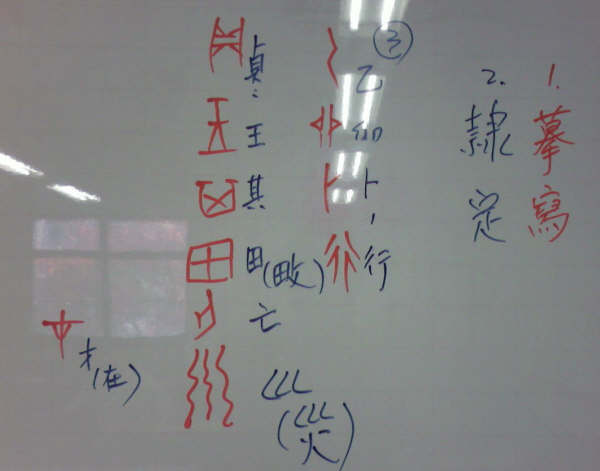 1. 摹寫
2. 隸定
③ 乙卯卜，行
貞：王其田(畋)亡巛(災)
才(在)